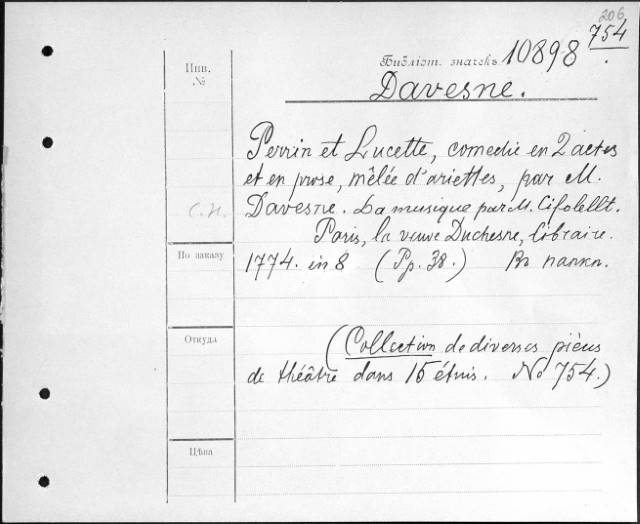 206
754
Библіот. значекъ 10898.
Инв. №
Davesne.
Perrin et Lucette, comedie en 2 actes
et en prose, mêlée d'ariettes, par M.
С.Н. Davesne. La musique par M. Cifolellt.
Paris, la veuve Duchesne, libraire.
По заказу
1774. in 8 (Pp. 38.) Въ папкѣ.
Откуда
(Collection de diverses pièces
de théâtre dans 15 étuis. No 754.)
Цѣна